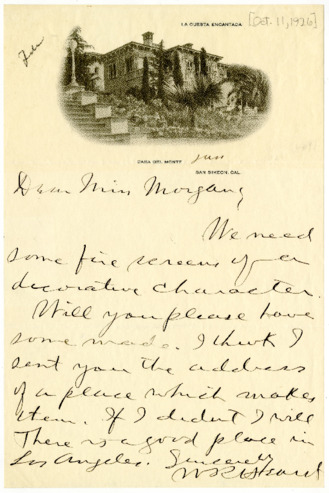 LA CUESTA ENCANTADA
[Oct. 11, 1926]
CASA DEL MONTE
SAN SIMEON, CAL.
Dear Miss Morgan,
We need
some fire screens of a
decorative character.
Will you please have
some made. I think I
sent you the address
of a place which makes
them. If I didnt I will
There is a good place in
Los Angeles. Sincerely
WRHearst